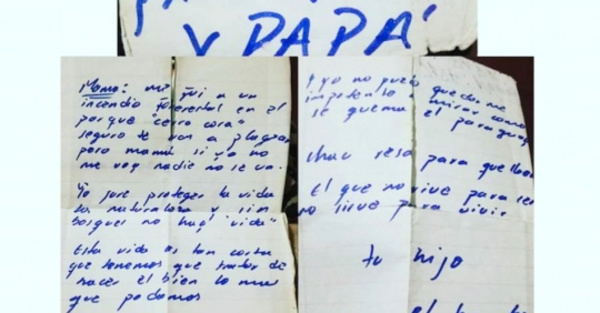 Y PAPÁ
Mama: me fui a un
incendio forerental en el
parque "cerro cora"
seguro te van a plaguear
pero mamá si yo no
me voy nadie no se va.
Yo jure proteger la vida
la naturaleza y sin
bosques no hay "vida"
Esta vida es tan corta
que tenemos que tratar de
hacer el bien lo mas
que podamos
Y yo no puedo quedarme
impotente a mirar como
se quema el paraguay
chau resa para que llueva
El que no vive para ser
no sirve para vivir
tu hijo
el